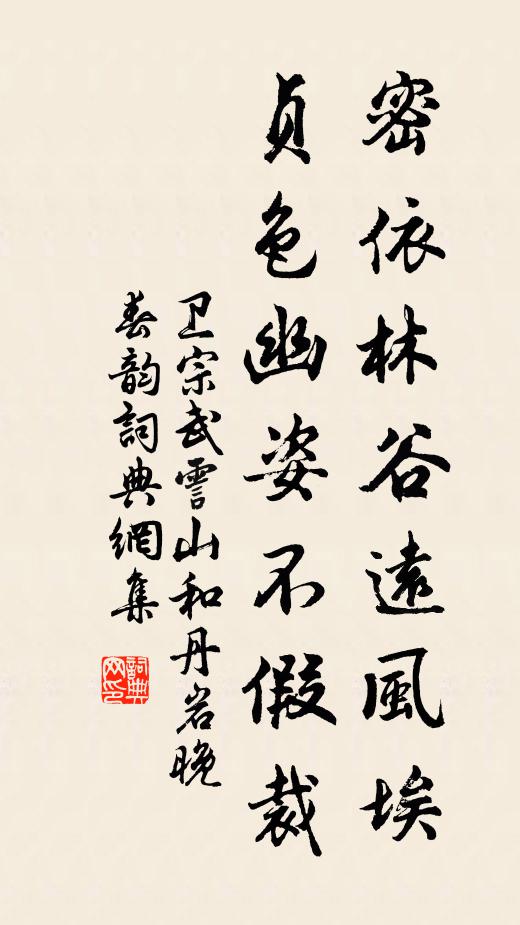 密依林谷遠風埃
貞色幽姿不假裁
卫宗武霅山和丹岩晚
春韵詞典網集
詞典网印